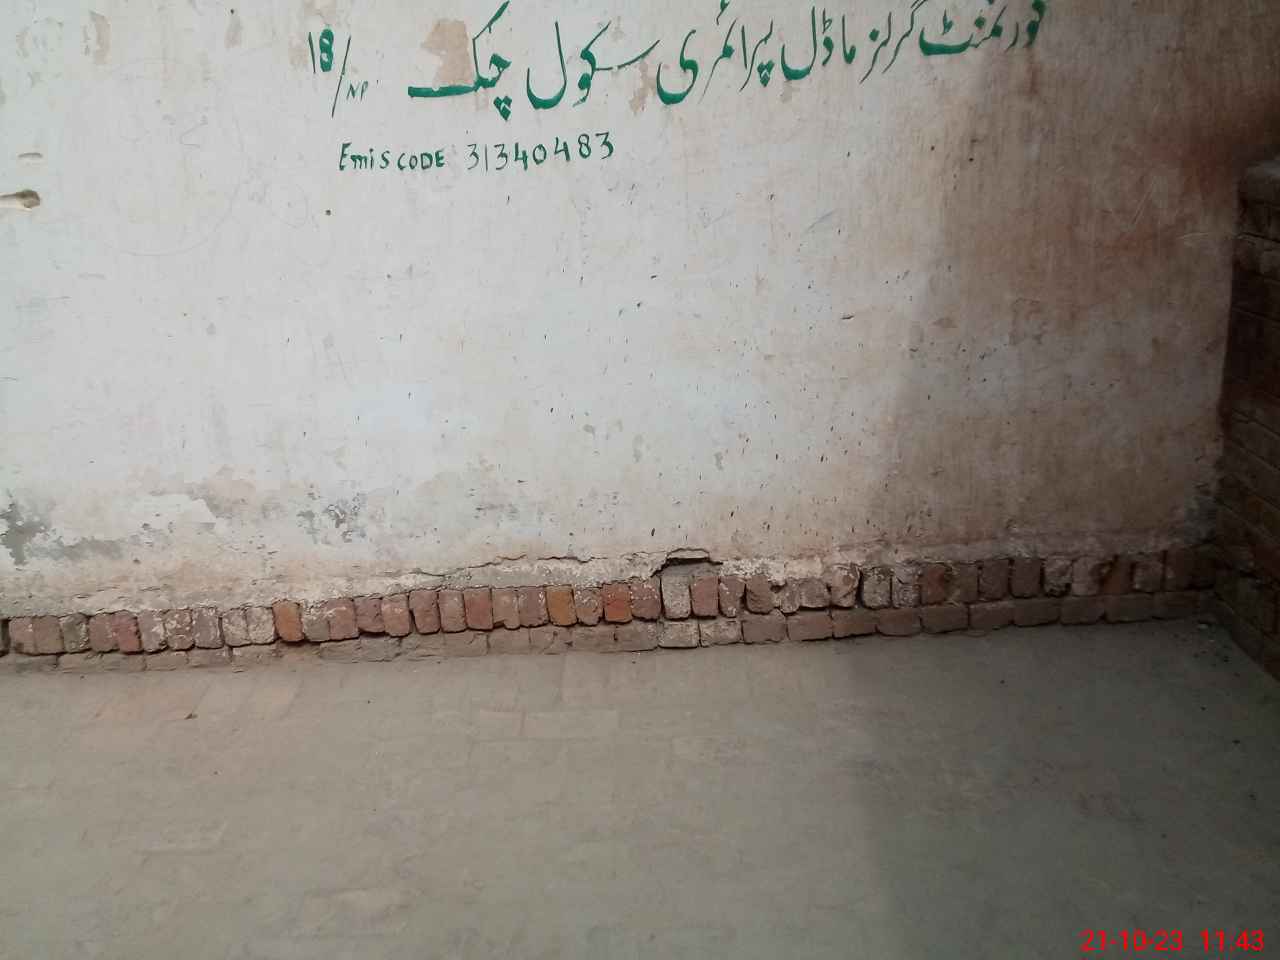 گورنمنٹ گرلز ماڈل پرائمری سکول چک 18/NP
Emis CODE 31340483
21-10-23 11:43